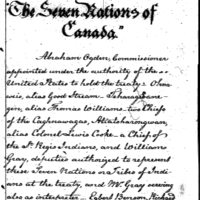 "The Seven Nations of
Canada."
Abraham Ogden, Commissioner
appointed under the authority of the
United States to hold the treaty. Ohna
weio, alias Good Stream, Teharagwane
gen, alias Thomas Williams, two Chiefs
of the Caghnawagas, Atiatoharongwan,
alias Colonel Lewis Cooke, a Chief of
the St Regis Indians, and William
Gray, deputies authorized to represent
these Seven Nations or Tribes of Indi
ans at the treaty, and Mr Gray serving
also as interpreter. Egbert Benson, Richard